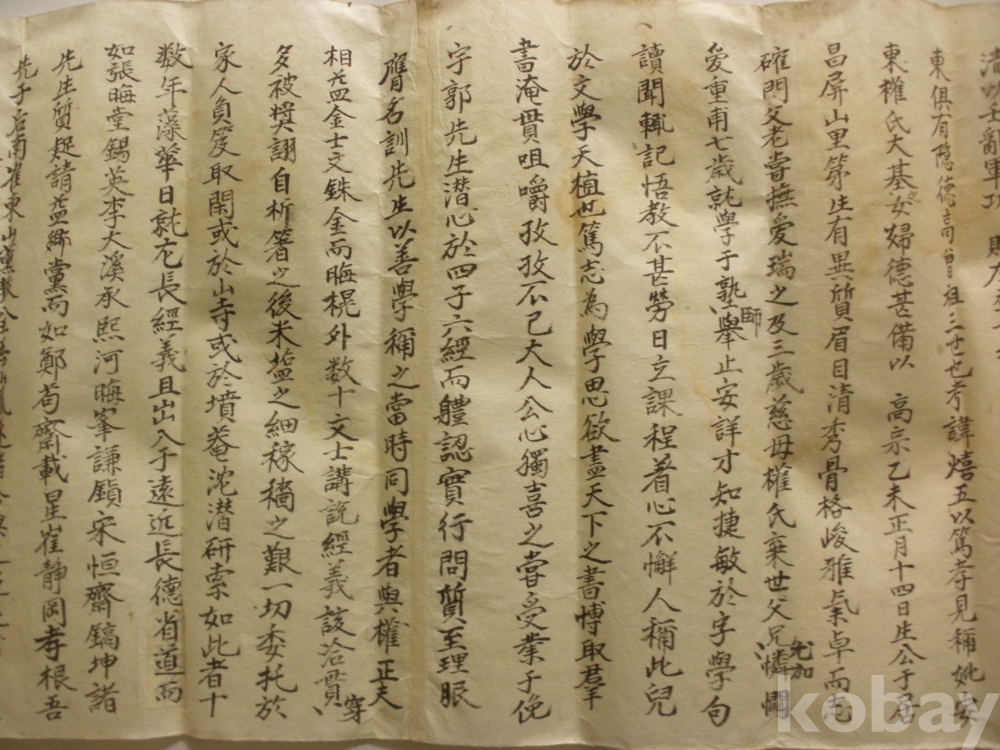 東俱有隱德高曾祖三世也考諱熺五以篤孝見稱妣安
東權氏大基之女婦德甚備以 高宗乙未正月十四日生公于居
昌屏山里第生有異質眉目清秀骨格峻雅氣卓而志
確門父老嘗撫愛瑞之及三歲慈母權氏棄世父兄憐閔尤加
愛重甫七歲就學于塾師擧止安詳才知捷敏於字學句
讀聞輒記悟教不甚勞日立課程着心不懈人稱此兒
於文學天植也篤志為學思欲盡天下之書博取羣
書淹貫咀嚼孜孜不已大人公心獨喜之嘗受業于俛
宇郭先生潛心於四子六經而軆認實行問質至理服
膺名訓先生以善學稱之當時同學者與權正夫
相益金士文銖金而晦榥外数十文士講說經義該洽貫穿
多被奬詡自析箸之後米塩之細稼穡之艱一切委托於
家人負笈取閑或於山寺或於墳菴沈潛研索如此者十
数年藻華日就尤長經義且出入于遠近長德省道而
如張晦堂錫英李大溪承熙河晦峯謙鎭宋恒齋鎬坤諸
先生質疑請益鄉黨而如鄭苟齋載星崔靜岡孝根吾
kobay